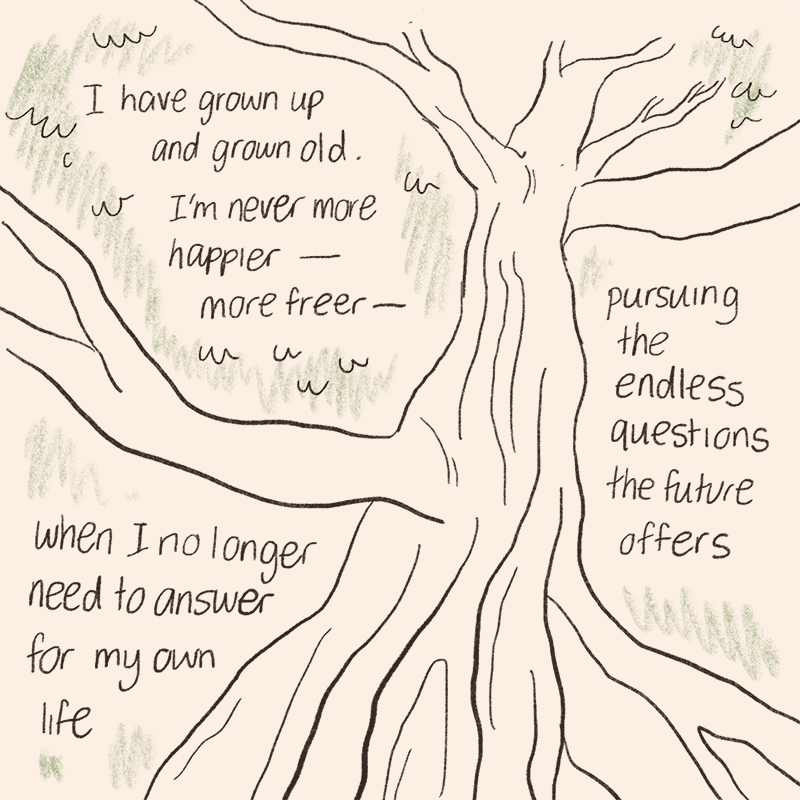 I have grown up
and grown old.
I'm never more
happier —
more freer —
pursuing
the
endless
questions
the future
offers
when I no longer
need to answer
for my own
life